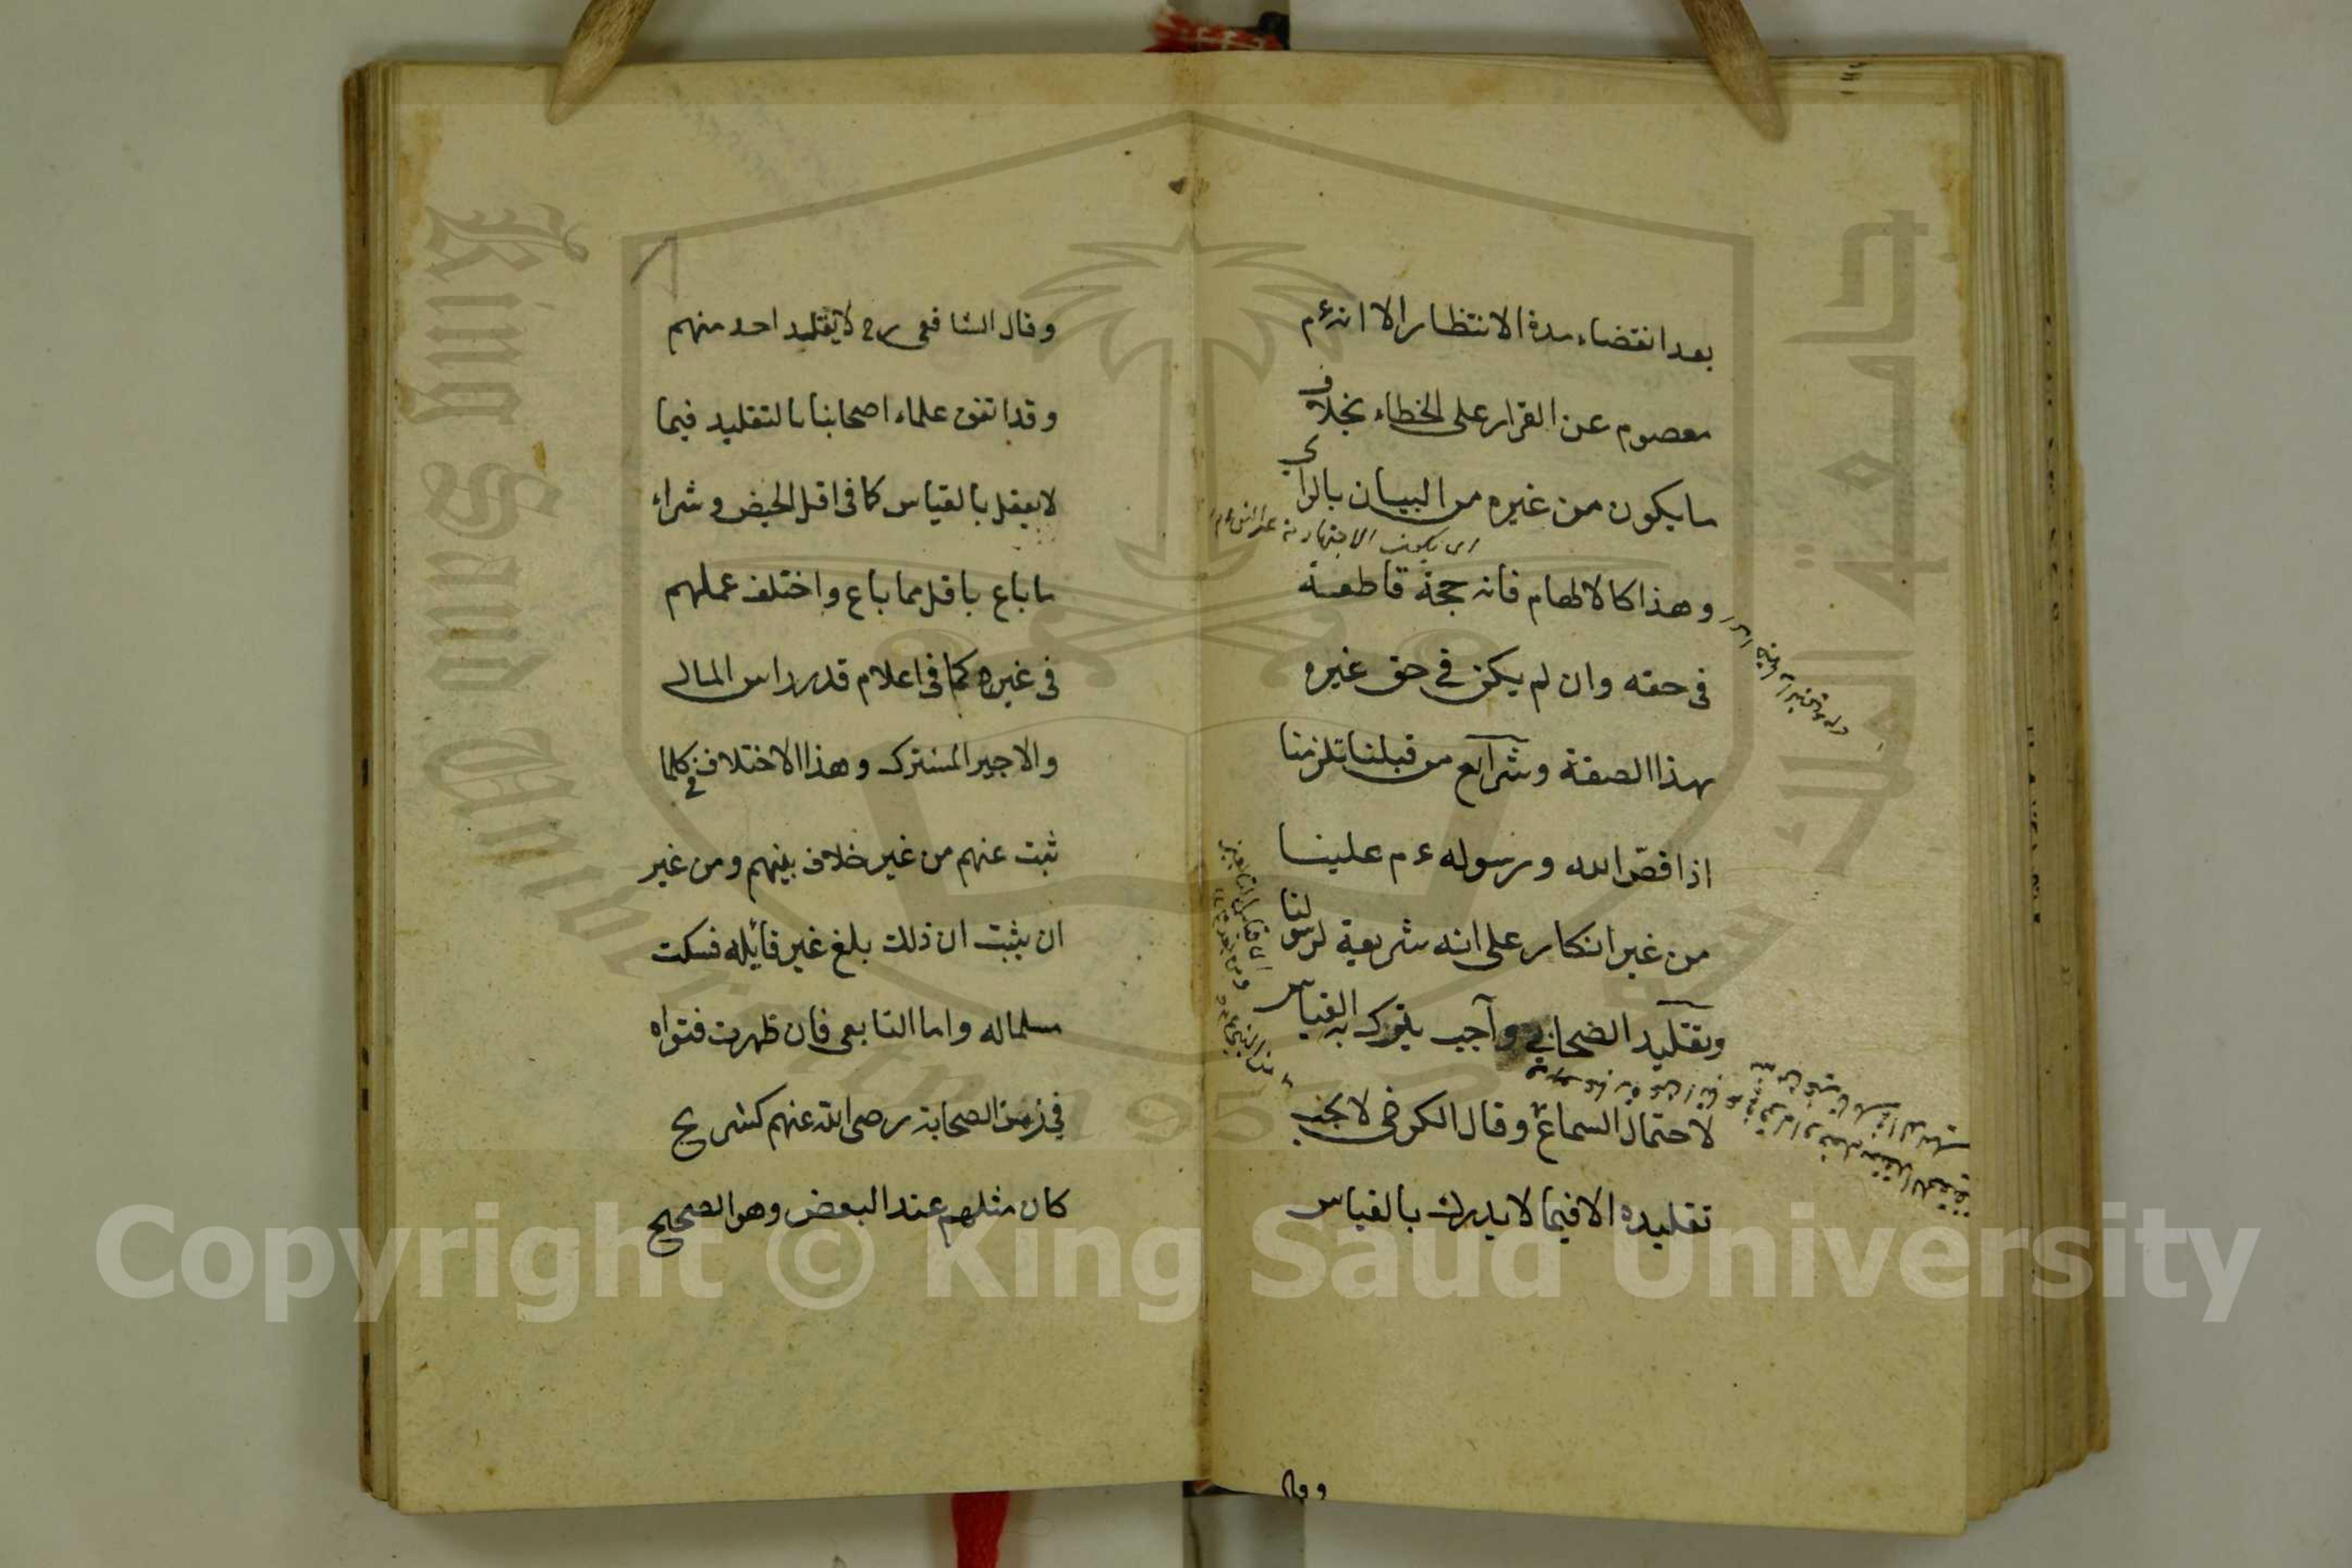 بعد انقضاء مدة الانتظار الا انه ءم
معصوم عن القرار على الخطاء بخلاف
ما يكون من غيره من البيان بالراي
وهذا كالالهام فانه حجة قاطعة
في حقه وان لم يكن في حق غيره
بهذا الصفة وشرآيع من قبلنا تلزمنا
اذا قصّ الله ورسوله ءم علينا
من غير انكار على انه شريعة لرسولنا
وتقليد الصحابي وآجب يترك به القياس
لاحتمال السماع وقال الكرخي لا يجب
تقليده الا فيما لا يدرك بالقياس
وقال
وقال الشافعي رح لا يقليد احد منهم
وقد اتفق علماء اصحابنا بالتقليد فيما
لا يعقل بالقياس كما في اقل الحيض وشراء
ما باع باقل مما باع واختلف عملهم
في غيره كما في اعلام قدر راس المال
والاجير المشترك وهذا الاختلاف في كلما
ثبت عنهم من غير خلاف بينهم ومن غير
ان يثبت ان ذلك بلغ غير قائله فسكت
مسلما له واما التابعي فان ظهرت فتواه
في زمن الصحابة رضى الله عنهم كشريح
كان مثلهم عند البعض وهو الصحيح
King Saud University
جامعة الملك سعود
1957
Copyright © King Saud University